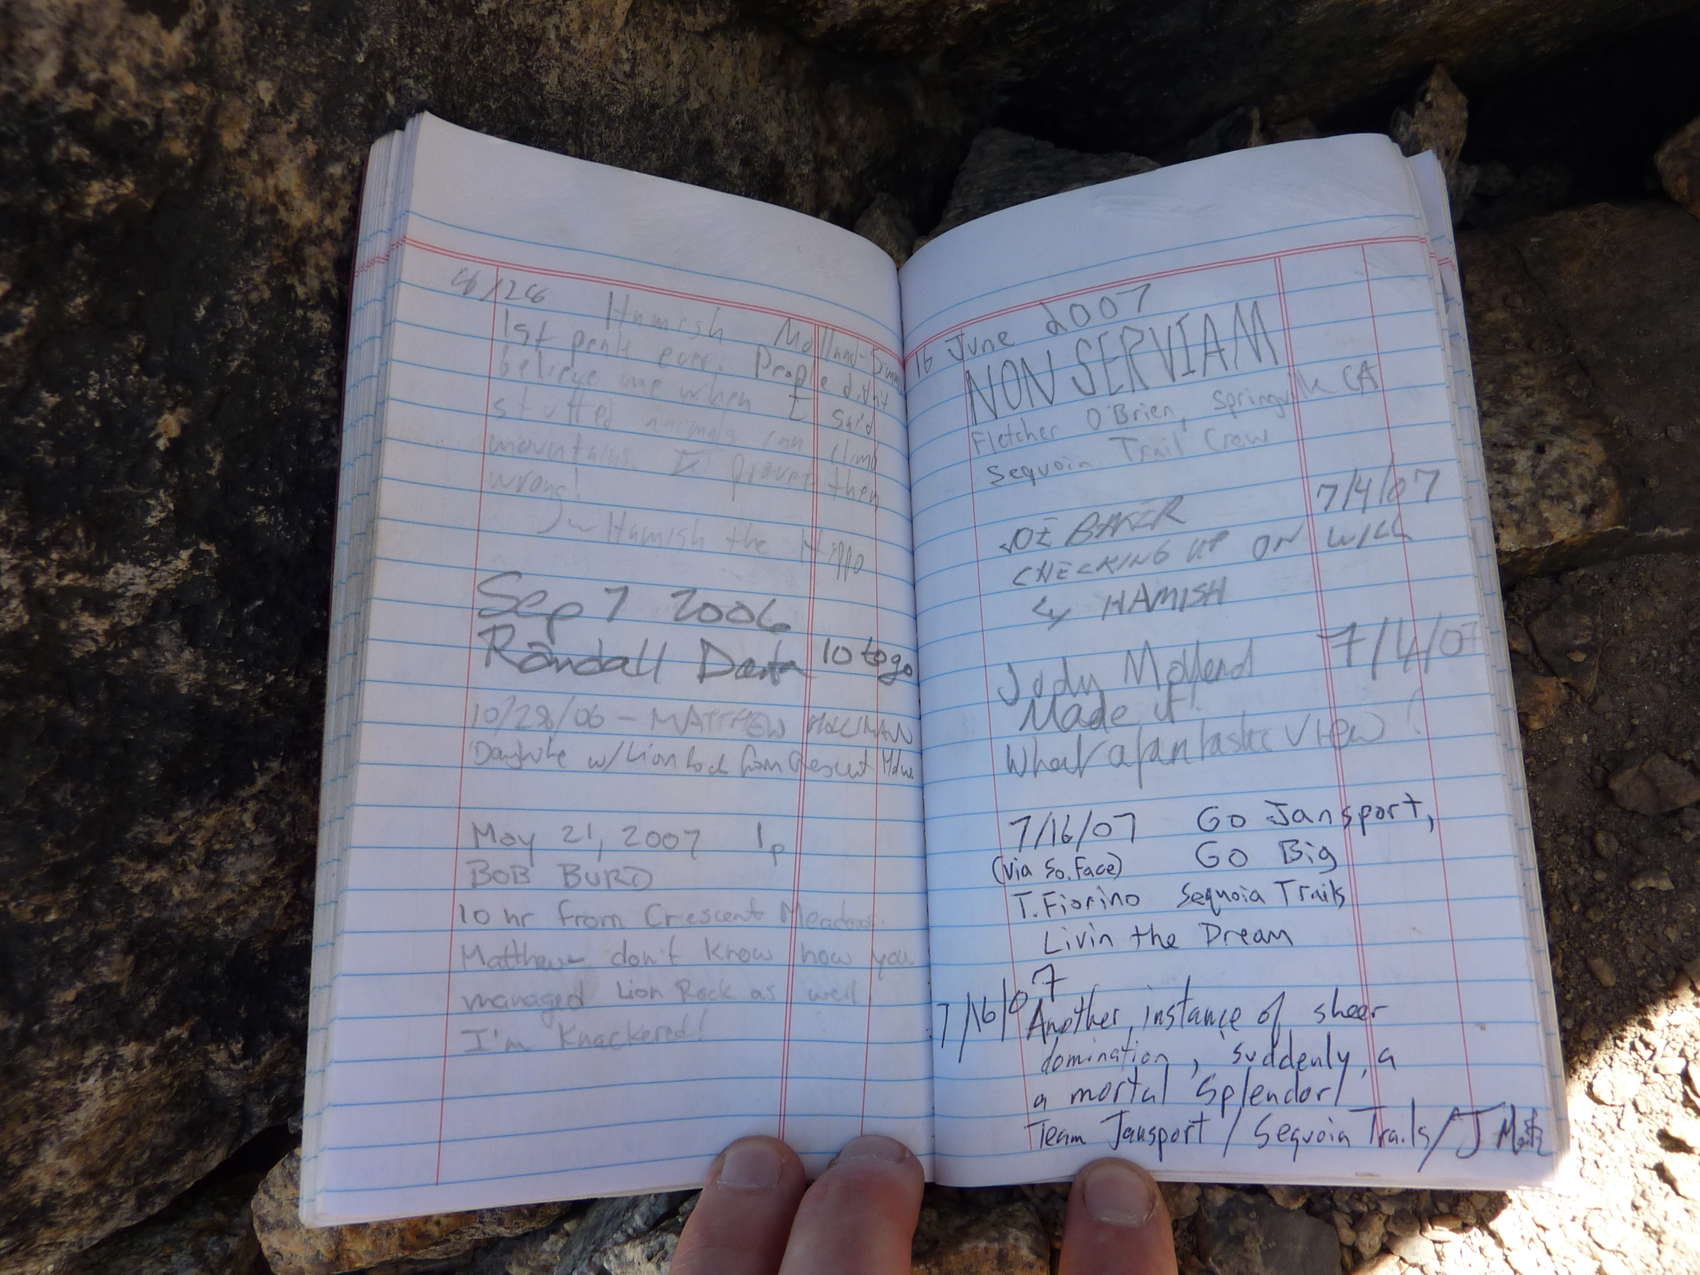 8/26 Hamish
1st peak ever. People didn't
believe me when I said
stuffed animals can climb
mountains. I proved them
wrong!
~ Hamish the Hippo
Sep 7 2006
Randall 10 to go
10/28/06 - MATTHEW HOLLIMAN
Dayhike w/ Lion Rock from Crescent Mdw
May 21, 2007 1p
BOB BURD
10 hr from Crescent Meadow.
Matthew - don't know how you
managed Lion Rock as well
I'm knackered!
16 June 2007
NON SERVIAM
Fletcher O'Brien, Springville CA
Sequoia Trail Crew
JOE BAKER 7/4/07
CHECKING UP ON WILL
HAMISH
Jody 7/4/07
Made it!
What a fantastic view!
7/16/07 Go Jansport,
(via So. Face) Go Big
T. Fiorino Sequoia Trails
Livin the Dream
7/16/07 Another, instance of sheer
domination, suddenly, a
a mortal splendor!
Team Jansport / Sequoia Trails / J